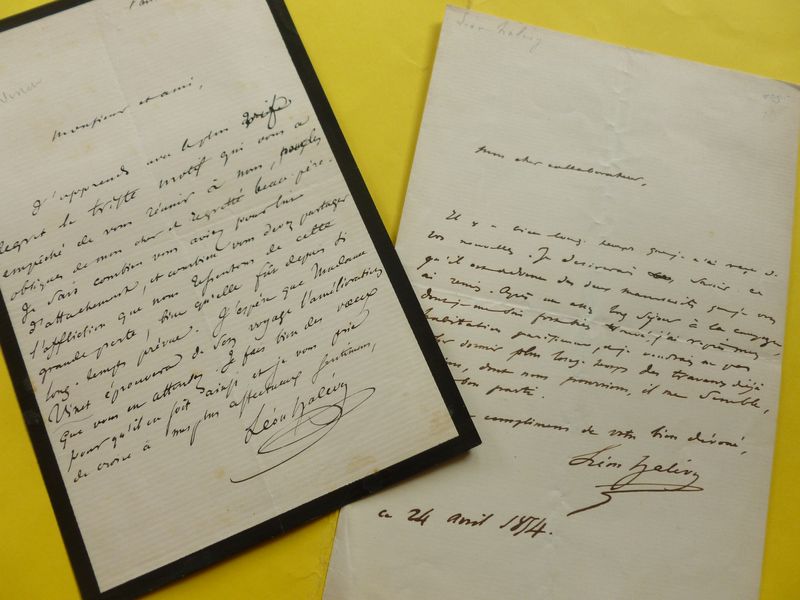 Monsieur et ami,
J'apprends avec le plus vif
regret le triste motif qui vous a
empêché de vous réunir à nous, aux
obsèques de mon cher et regretté beau-père.
Je sais combien vous aviez pour lui
d'attachement, et combien vous devez partager
l'affliction que nous ressentons de cette
grande perte, bien qu'elle fût depuis si
long-temps prévue. J'espère que Madame
Vinet éprouvera de son voyage l'amélioration
que vous en attendez. Je fais bien des vœux
pour qu'il en soit ainsi, et je vous prie
de croire à mes plus affectueux sentimens,
Léon Halévy
Léon Halévy
Mon cher collaborateur,
Il y a bien long-temps que je n'ai reçu de
vos nouvelles. Je désirerais savoir ce
qu'il en est des deux manuscrits que je vous
ai remis. Après un assez long séjour à la campagne,
j'ai repris mes
habitations parisiennes, et je ne pas
dormir plus long-temps des travaux déjà
dont nous pourrions, il me semble,
bon parti.
complimens de votre bien dévoué,
Léon Halévy
ce 24 avril 1854.